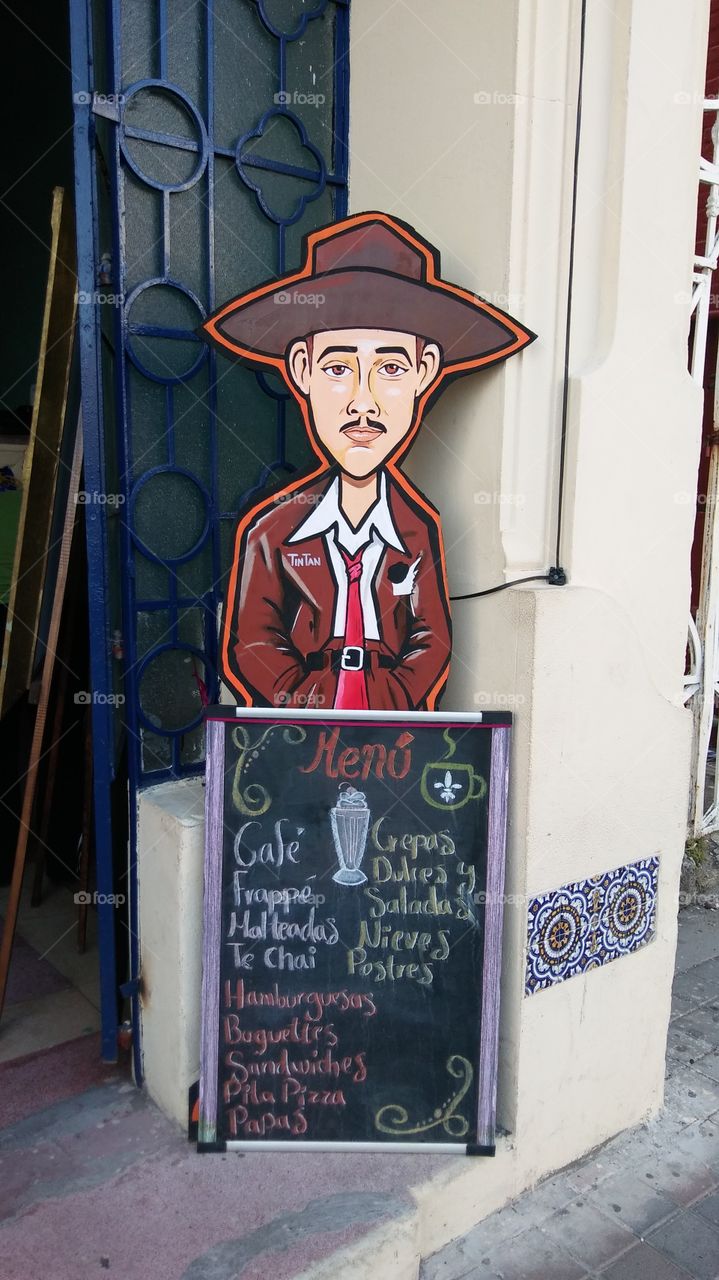 TINTAN
Menú
Café
Frappé
Malteadas
Te chai
Crepas
Dulces y
Saladas
Nieves
Postres
Hamburguesas
Baguettes
Sandwiches
Pita Pizza
Papas